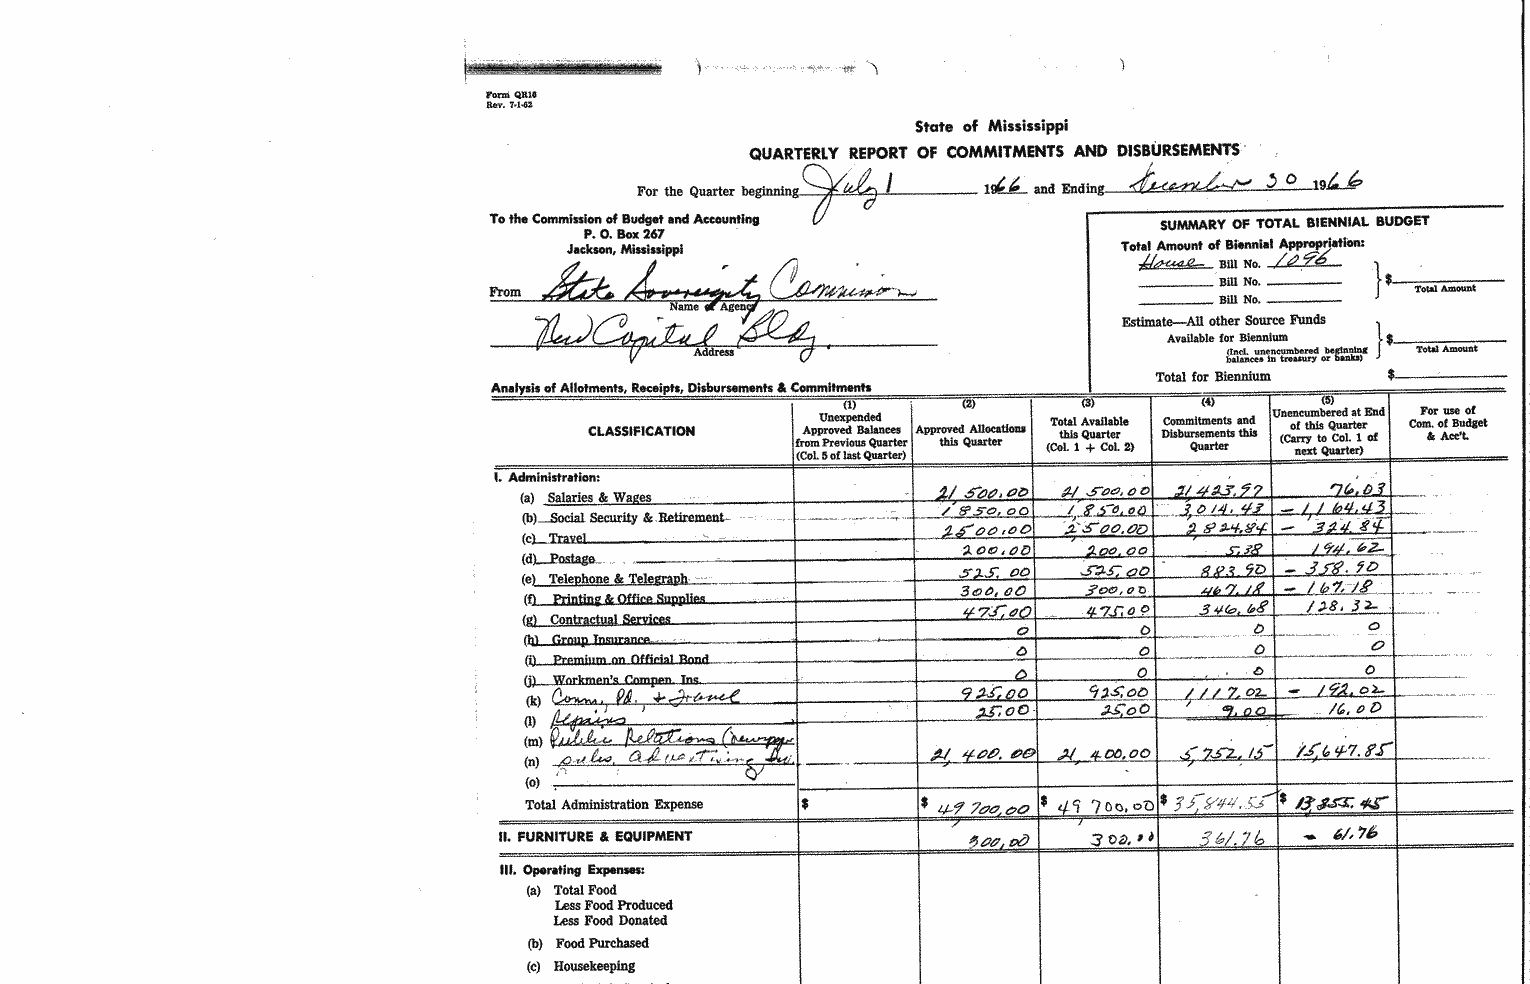 Form QR16
Rev. 7-1-62
State of Mississippi
QUARTERLY REPORT OF COMMITMENTS AND DISBURSEMENTS
For the Quarter beginning July 1 1966 and Ending December 30 1966
To the Commission of Budget and Accounting
P. O. Box 267
Jackson, Mississippi
From State Sovereignty Commission
Name of Agency
New Capitol Bldg.
Address
SUMMARY OF TOTAL BIENNIAL BUDGET
Total Amount of Biennial Appropriation:
House Bill No. 1096
Bill No.
Bill No.
$
Total Amount
Estimate—All other Source Funds
Available for Biennium
(Incl. unencumbered beginning
balances in treasury or banks)
$
Total Amount
Total for Biennium $
Analysis of Allotments, Receipts, Disbursements & Commitments
CLASSIFICATION
(1)
Unexpended
Approved Balances
from Previous Quarter
(Col. 5 of last Quarter)
(2)
Approved Allocations
this Quarter
(3)
Total Available
this Quarter
(Col. 1 + Col. 2)
(4)
Commitments and
Disbursements this
Quarter
(5)
Unencumbered at End
of this Quarter
(Carry to Col. 1 of
next Quarter)
For use of
Com. of Budget
& Acc't.
I. Administration:
(a) Salaries & Wages 21,500.00 21,500.00 21,423.97 76.03
(b) Social Security & Retirement 1,850.00 1,850.00 3,014.43 - 1,164.43
(c) Travel 2500.00 2,500.00 2,824.84 - 324.84
(d) Postage 200.00 200.00 5.38 194.62
(e) Telephone & Telegraph 525.00 525.00 883.90 - 358.90
(f) Printing & Office Supplies 300.00 300.00 467.18 - 167.18
(g) Contractual Services 475.00 475.00 346.68 128.32
(h) Group Insurance 0 0 0 0
(i) Premium on Official Bond 0 0 0 0
(j) Workmen's Compen. Ins. 0 0 0 0
(k) Comm. Pd., & Travel 925.00 925.00 1,117.02 - 192.02
(l) Repairs 25.00 25.00 9.00 16.00
(m) Public Relations
(n) advertising 21,400.00 21,400.00 5,752.15 15,647.85
(o)
Total Administration Expense $ $ 49,700.00 $ 49,700.00 $ 35,844.55 $ 13,855.45
II. FURNITURE & EQUIPMENT 300.00 300.00 361.76 - 61.76
III. Operating Expenses:
(a) Total Food
Less Food Produced
Less Food Donated
(b) Food Purchased
(c) Housekeeping